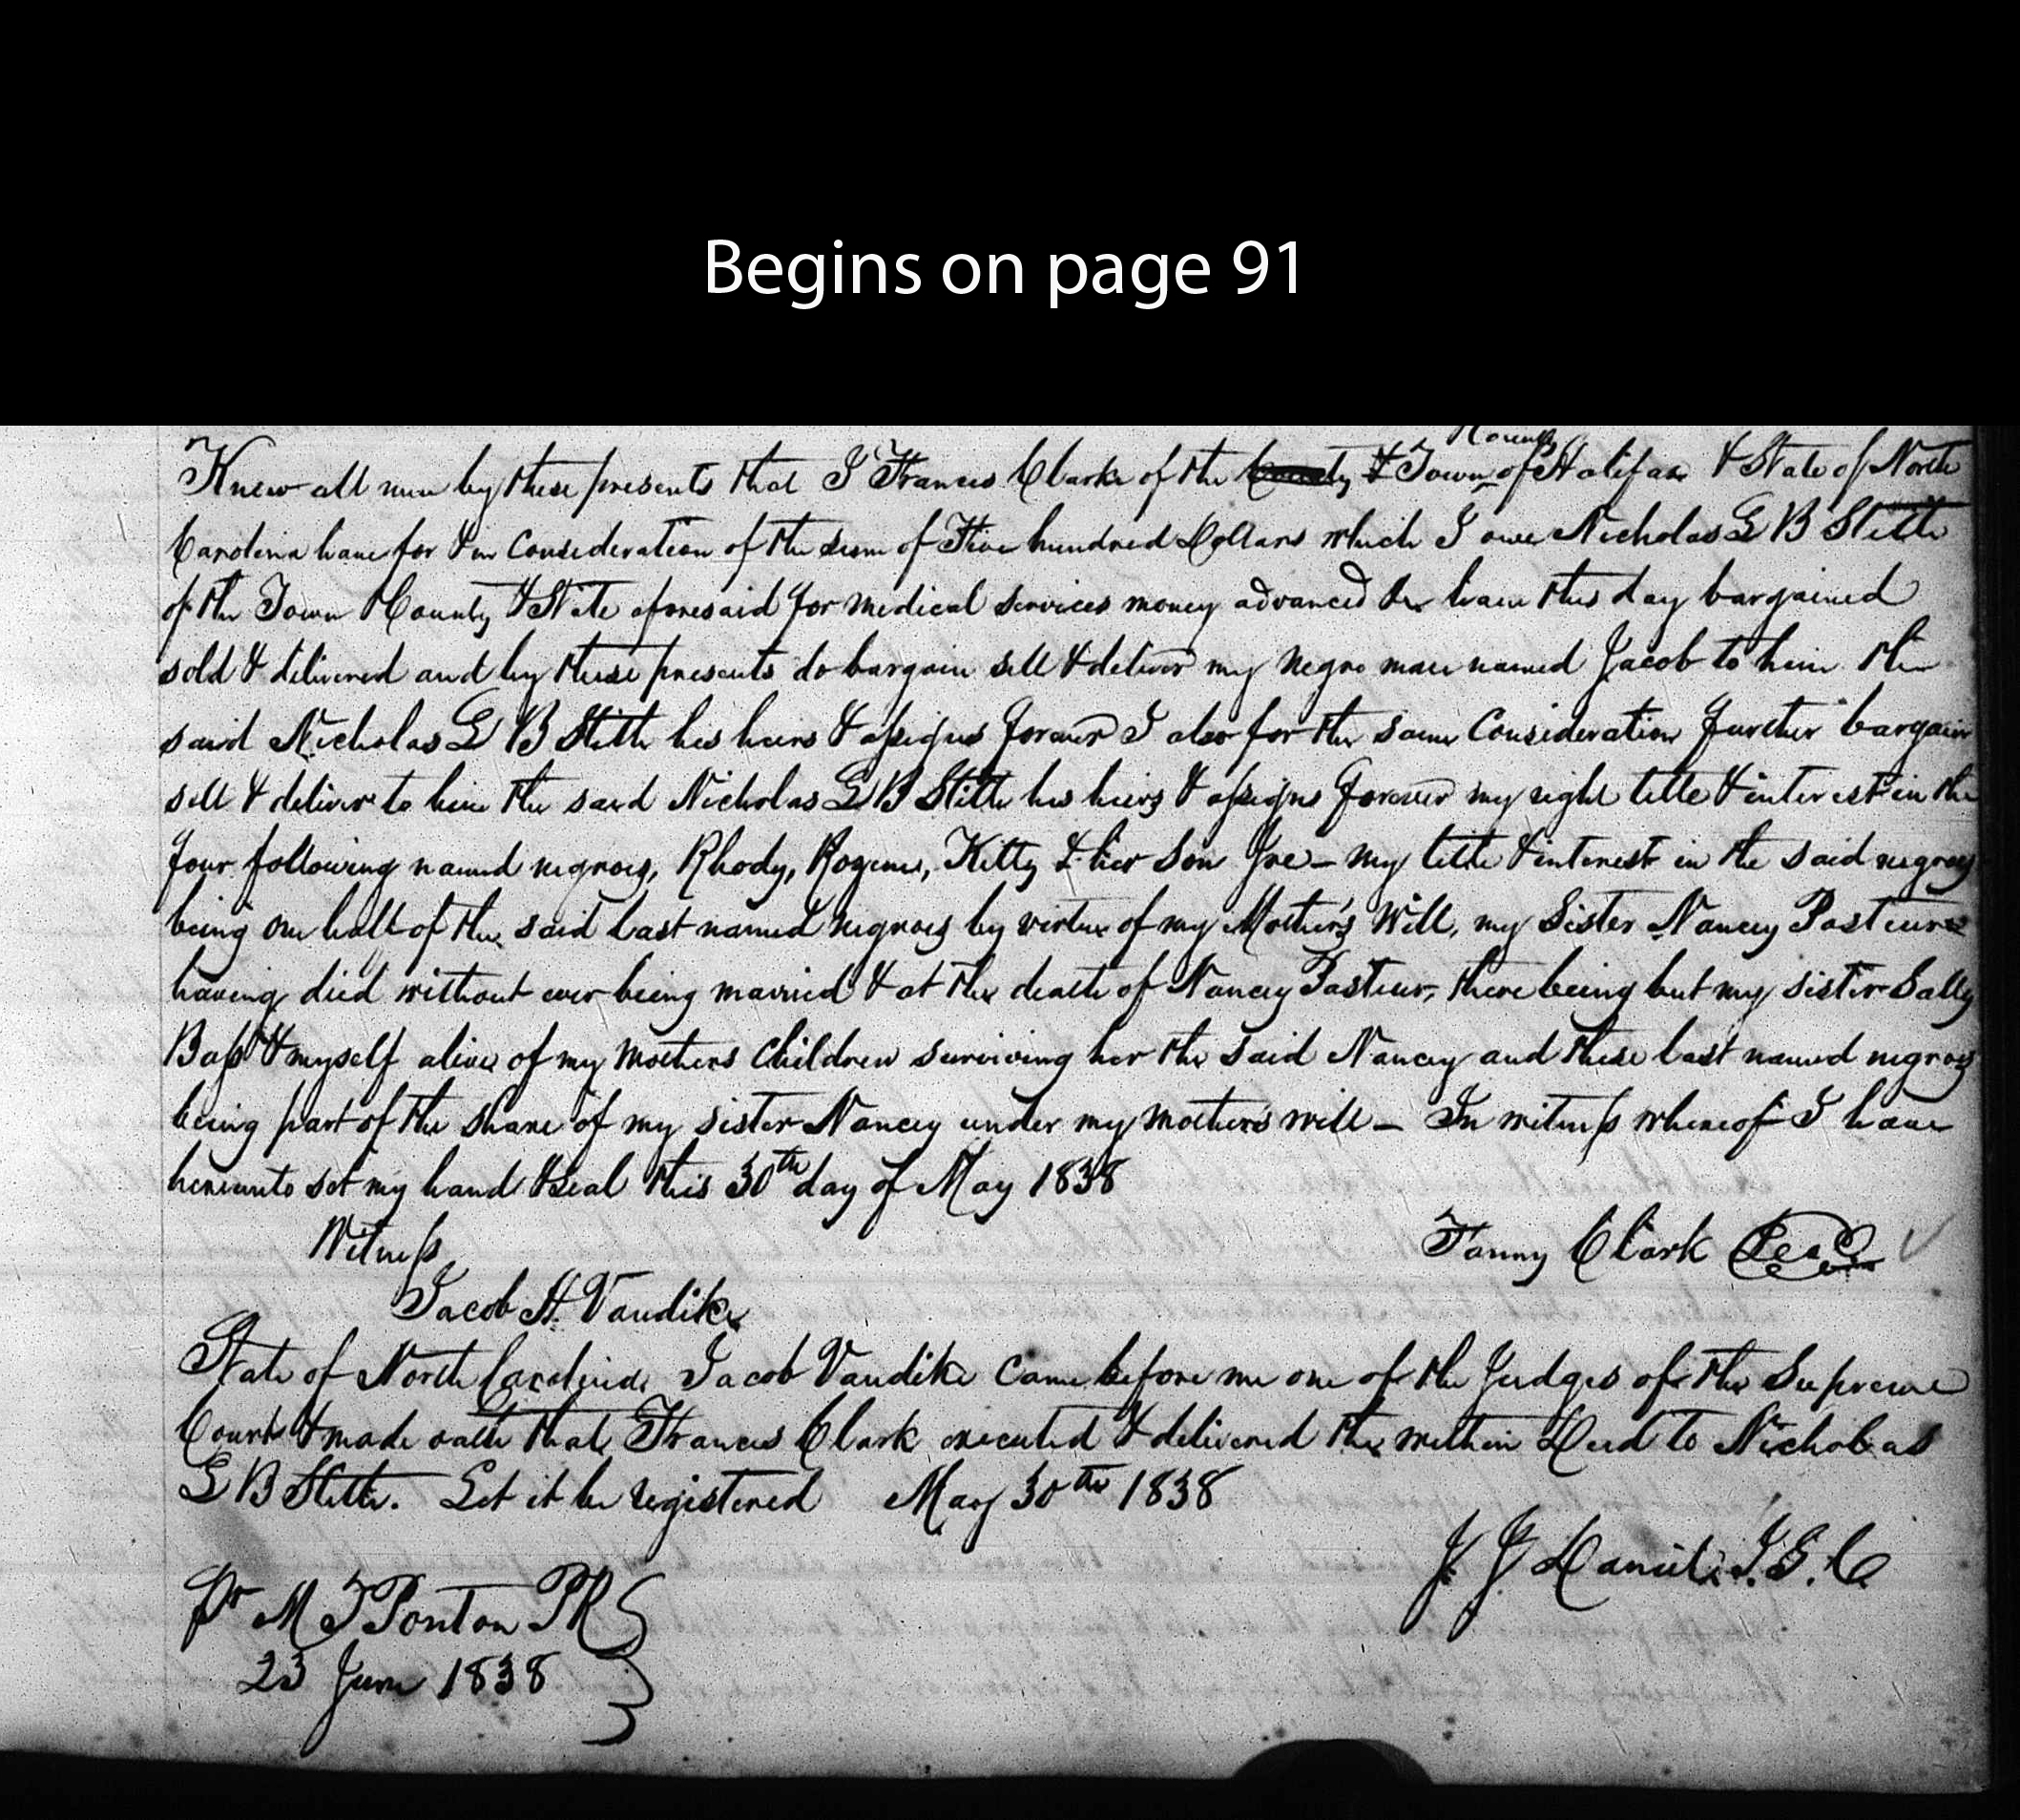 Begins on page 91
County
Know all men by these presents that I Frances Clark of the County & Town of Halifax & State of North
Carolina have for & in Consideration of the sum of Five hundred Dollars which I owe Nicholas G B Stith
of the Town County & State aforesaid for medical services money advanced &c have this day bargained
sold & delivered and by these presents do bargain sell & deliver my negro man named Jacob to him the
said Nicholas G B Stith his heirs & assigns forever I also for the same Consideration further bargain
sell & deliver to him the said Nicholas G B Stith his heirs & assigns forever my right title & interest in the
four following named negroes, Rhody, Kitty & her son Joe – my title & interest in the said negroes
being one half of the said last named negroes by virtue of my Mother's Will, my Sister Nancy Pasteur
having died without ever being married & at the death of Nancy Pasteur, there being but my sister Sally
Bass & myself alive of my mothers Children surviving her the said Nancy and these last named negroes
being part of the share of my sister Nancy under my mother's will – In witness whereof I have
hereunto set my hand & seal this 30th day of May 1838
Witness
Fanny Clark Seal
Jacob H. Vandike
State of North Carolina Jacob Vandike came before me one of the Judges of the Supreme
Court & made oath that Frances Clark executed & delivered the within Deed to Nicholas
G B Stith. Let it be registered May 30th 1838
J. J. Daniel J. S. C.
Pr M T Ponton PR
23 June 1838